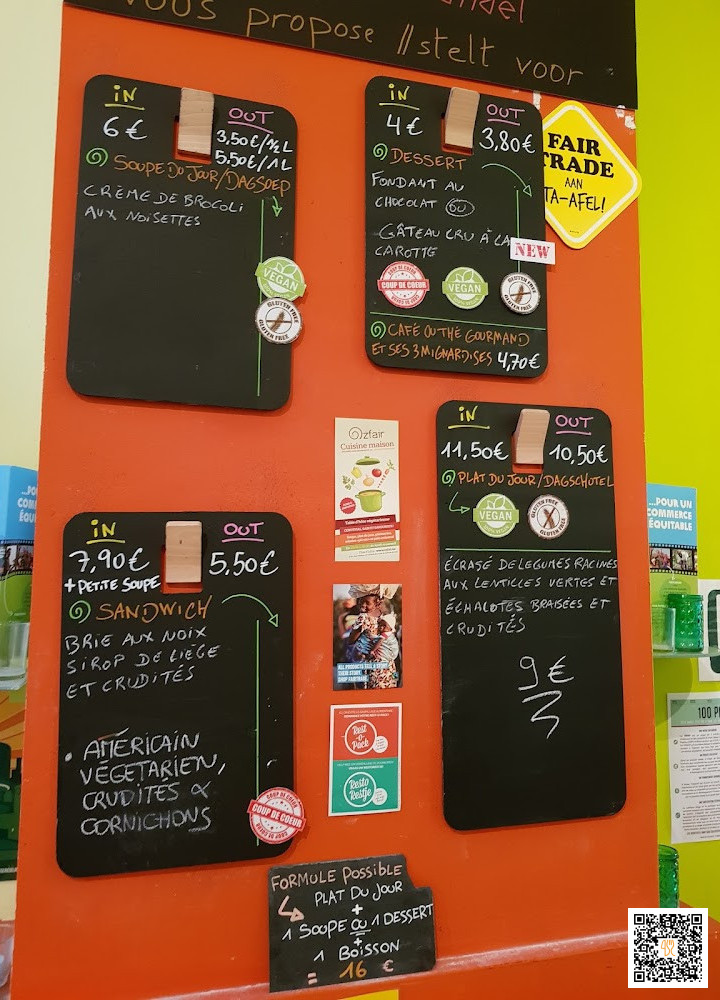 vous propose // stelt voor
IN
6 €
OUT
3,50€/½ L
5.50€/1L
SOUPE DU JOUR/DAGSOEP
CRÈME DE BROCOLI
AUX NOISETTES
VEGAN
GLUTEN FREE
GLUTEN FREE
IN
4 €
OUT
3,80€
DESSERT
FONDANT AU
CHOCOLAT OU
GÂTEAU CRU À LA
CAROTTE
NEW
COUP DE COEUR
VEGAN
GLUTEN FREE
GLUTEN FREE
CAFÉ OU THÉ GOURMAND
ET SES 3 MIGNARDISES 4,70€
FAIR
TRADE
AAN
TA-AFEL!
IN
7,90€
+ PETITE SOUPE
OUT
5,50€
SANDWICH
BRIE AUX NOIX
SIROP DE LIÈGE
ET CRUDITÉS
• AMÉRICAIN
VÉGETARIEN,
CRUDITES &
CORNICHONS
COUP DE COEUR
Ozfair
Cuisine maison
ALL PRODUCTS TELL A STORY
THEIR STORY.
SHOP FAIRTRADE.
Rest-
o-
Pack
Resto
Restje
IN
11,50€
OUT
10,50€
PLAT DU JOUR/DAGSCHOTEL
VEGAN
GLUTEN FREE
GLUTEN FREE
ÉCRASÉ DE LEGUMES RACINES
AUX LENTILLES VERTES ET
ÉCHALOTES BRAISÉES ET
CRUDITÉS
9 €
FORMULE POSSIBLE
PLAT DU JOUR
+
1 SOUPE OU 1 DESSERT
+
1 BOISSON
= 16 €
...POUR UN
COMMERCE
ÉQUITABLE
100 P